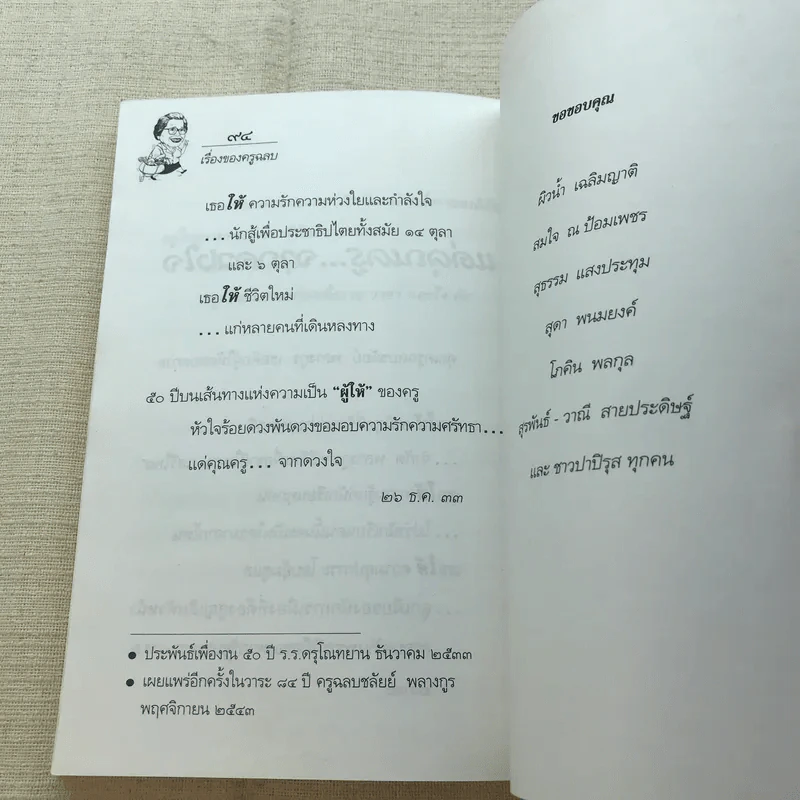 ๙๔
เรื่องของครูฉลบ
เธอให้ ความรักความห่วงใยและกำลังใจ
...นักสู้เพื่อประชาธิปไตยทั้งสมัย ๑๔ ตุลา
และ ๖ ตุลา
เธอให้ ชีวิตใหม่
...แก่หลายคนที่เดินหลงทาง
๕๐ ปีบนเส้นทางแห่งความเป็น “ผู้ให้” ของครู
หัวใจร้อยดวงพันดวงขอมอบความรักความศรัทธา...
แด่คุณครู... จากดวงใจ
๒๖ ธ.ค. ๓๓
● ประพันธ์เพื่องาน ๕๐ ปี ร.ร.ดรุโณทยาน ธันวาคม ๒๕๓๓
● เผยแพร่อีกครั้งในวาระ ๘๔ ปี ครูฉลบชลัยย์ พลางกูร
พฤศจิกายน ๒๕๔๓
ขอขอบคุณ
ผิวน้ำ เฉลิมญาติ
สมใจ ณ ป้อมเพชร
สุธรรม แสงประทุม
สุดา พนมยงค์
โภคิน พลกุล
สุรพันธ์ - วาณี สายประดิษฐ์
และ ชาวปาปิรุส ทุกคน